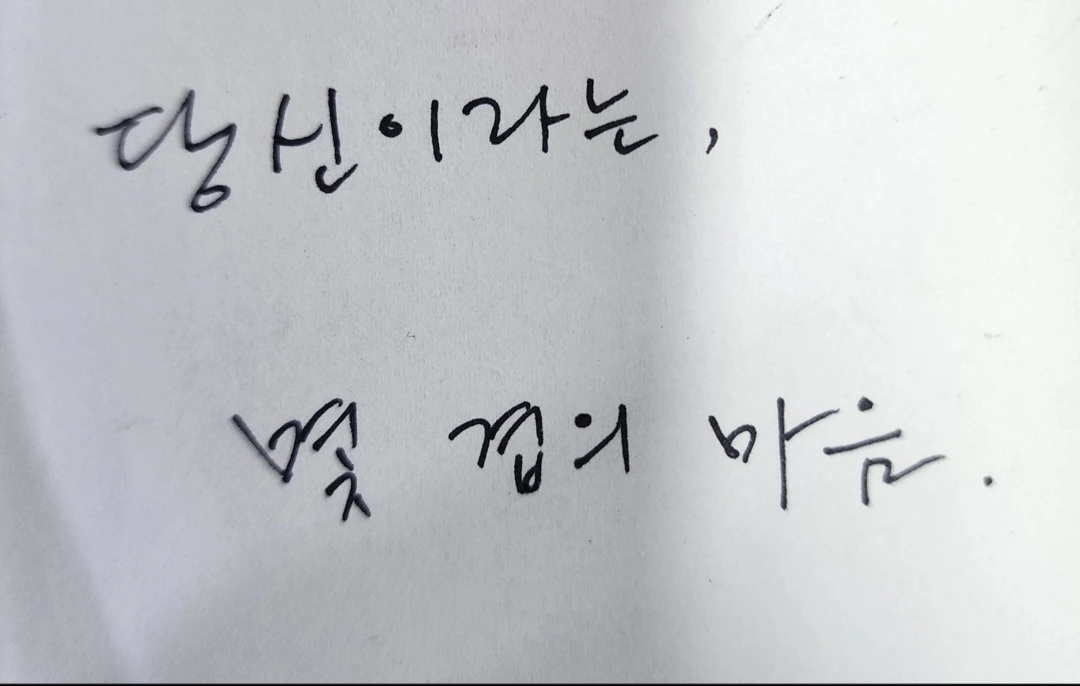 당신이라는,
몇 겹의 마음.